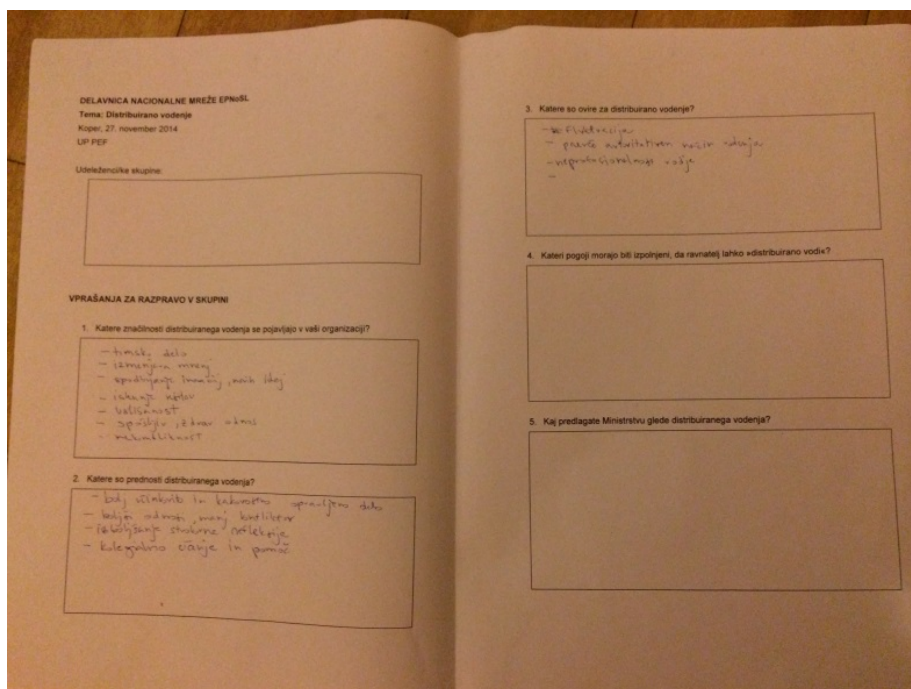 DELAVNICA NACIONALNE MREŽE EPNoSL
Tema: Distribuirano vodenje
Koper, 27. november 2014
UP PEF
Udeleženci/ke skupine:
VPRAŠANJA ZA RAZPRAVO V SKUPINI
1. Katere značilnosti distribuiranega vodenja se pojavljajo v vaši organizaciji?
- timsko delo
- izmenjava mnenj
- spodbujanje novih idej
- iskanje rešitev
-
- spoštljiv, zdrav odnos
-
2. Katere so prednosti distribuiranega vodenja?
- bolj učinkovito in kakovostno opravljeno delo
- boljši odnosi, manj konfliktov
- izboljšanje strokovne refleksije
- kolegialno učenje in pomoč
3. Katere so ovire za distribuirano vodenje?
-
- preveč avtoritativen način vodenja
- neprofesionalnost vodje
-
4. Kateri pogoji morajo biti izpolnjeni, da ravnatelj lahko »distribuirano vodi«?
5. Kaj predlagate Ministrstvu glede distribuiranega vodenja?